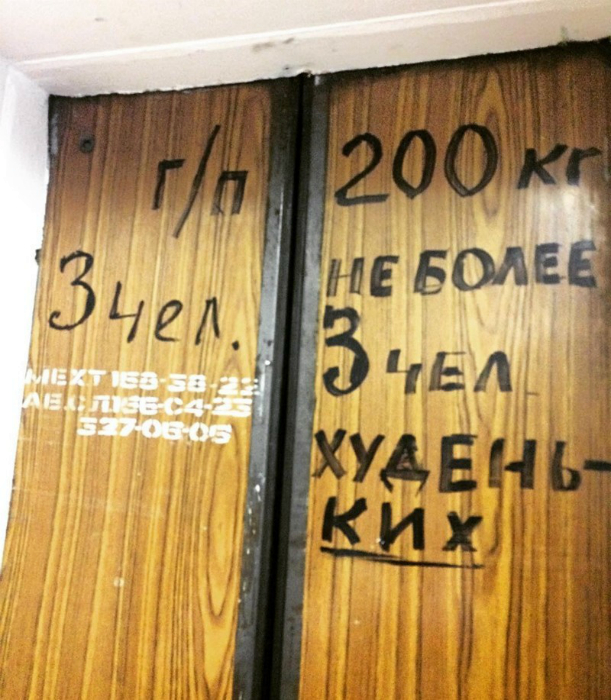 г/п
3 чел.
МЕХТ 168-38-22
527-06-05
200 кг
НЕ БОЛЕЕ
3 ЧЕЛ.
ХУДЕНЬ-
КИХ